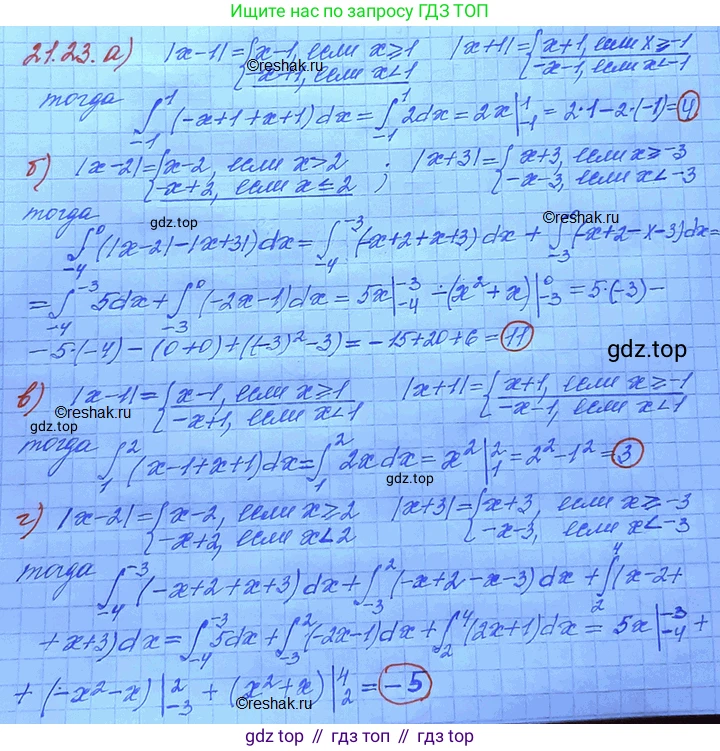 Ищите нас по запросу ГДЗ ТОП
21.23. а) |x-1|={x-1, если x⩾1 |x+1|={x+1, если x⩾-1
-x+1, если x<1 -x-1, если x<-1
©reshak.ru
тогда ∫₋₁¹ (-x+1+x+1)dx=∫₋₁¹ 2dx=2x|₋₁¹=2·1-2·(-1)=4
б) |x-2|={x-2, если x>2 ; |x+3|={x+3, если x⩾-3
©reshak.ru
-x+2, если x≤2 -x-3, если x<-3
тогда
gdz.top
∫₋₄⁰(|x-2|-|x+3|)dx=∫₋₄⁻³(-x+2+x+3)dx+∫₋₃⁰(-x+2-x-3)dx=
=∫₋₄⁻³5dx+∫₋₃⁰(-2x-1)dx=5x|₋₄⁻³-(x²+x)|₋₃⁰=5·(-3)-
-5·(-4)-(0+0)+((-3)²-3)=-15+20+6=11
gdz.top
в) |x-1|={x-1, если x⩾1 |x+1|={x+1, если x⩾-1
©reshak.ru
-x+1, если x<1 -x-1, если x<1
gdz.top
тогда ∫₁²(x-1+x+1)dx=∫₁²2xdx=x²|₁²=2²-1²=3
gdz.top
©reshak.ru
г) |x-2|={x-2, если x⩾2 |x+3|={x+3, если x⩾-3
-x+2, если x<2 -x-3, если x<-3
тогда ∫₋₄⁻³(-x+2+x+3)dx+∫₋₃²(-x+2-x-3)dx+∫₂⁴(x-2+
+x+3)dx=∫₋₄⁻³5dx+∫₋₃²(-2x-1)dx+∫₂⁴(2x+1)dx=5x|₋₄⁻³+
+(-x²-x)|₋₃²+(x²+x)|₂⁴=-5
©reshak.ru
©reshak.ru
gdz.top // гдз.топ // gdz.top